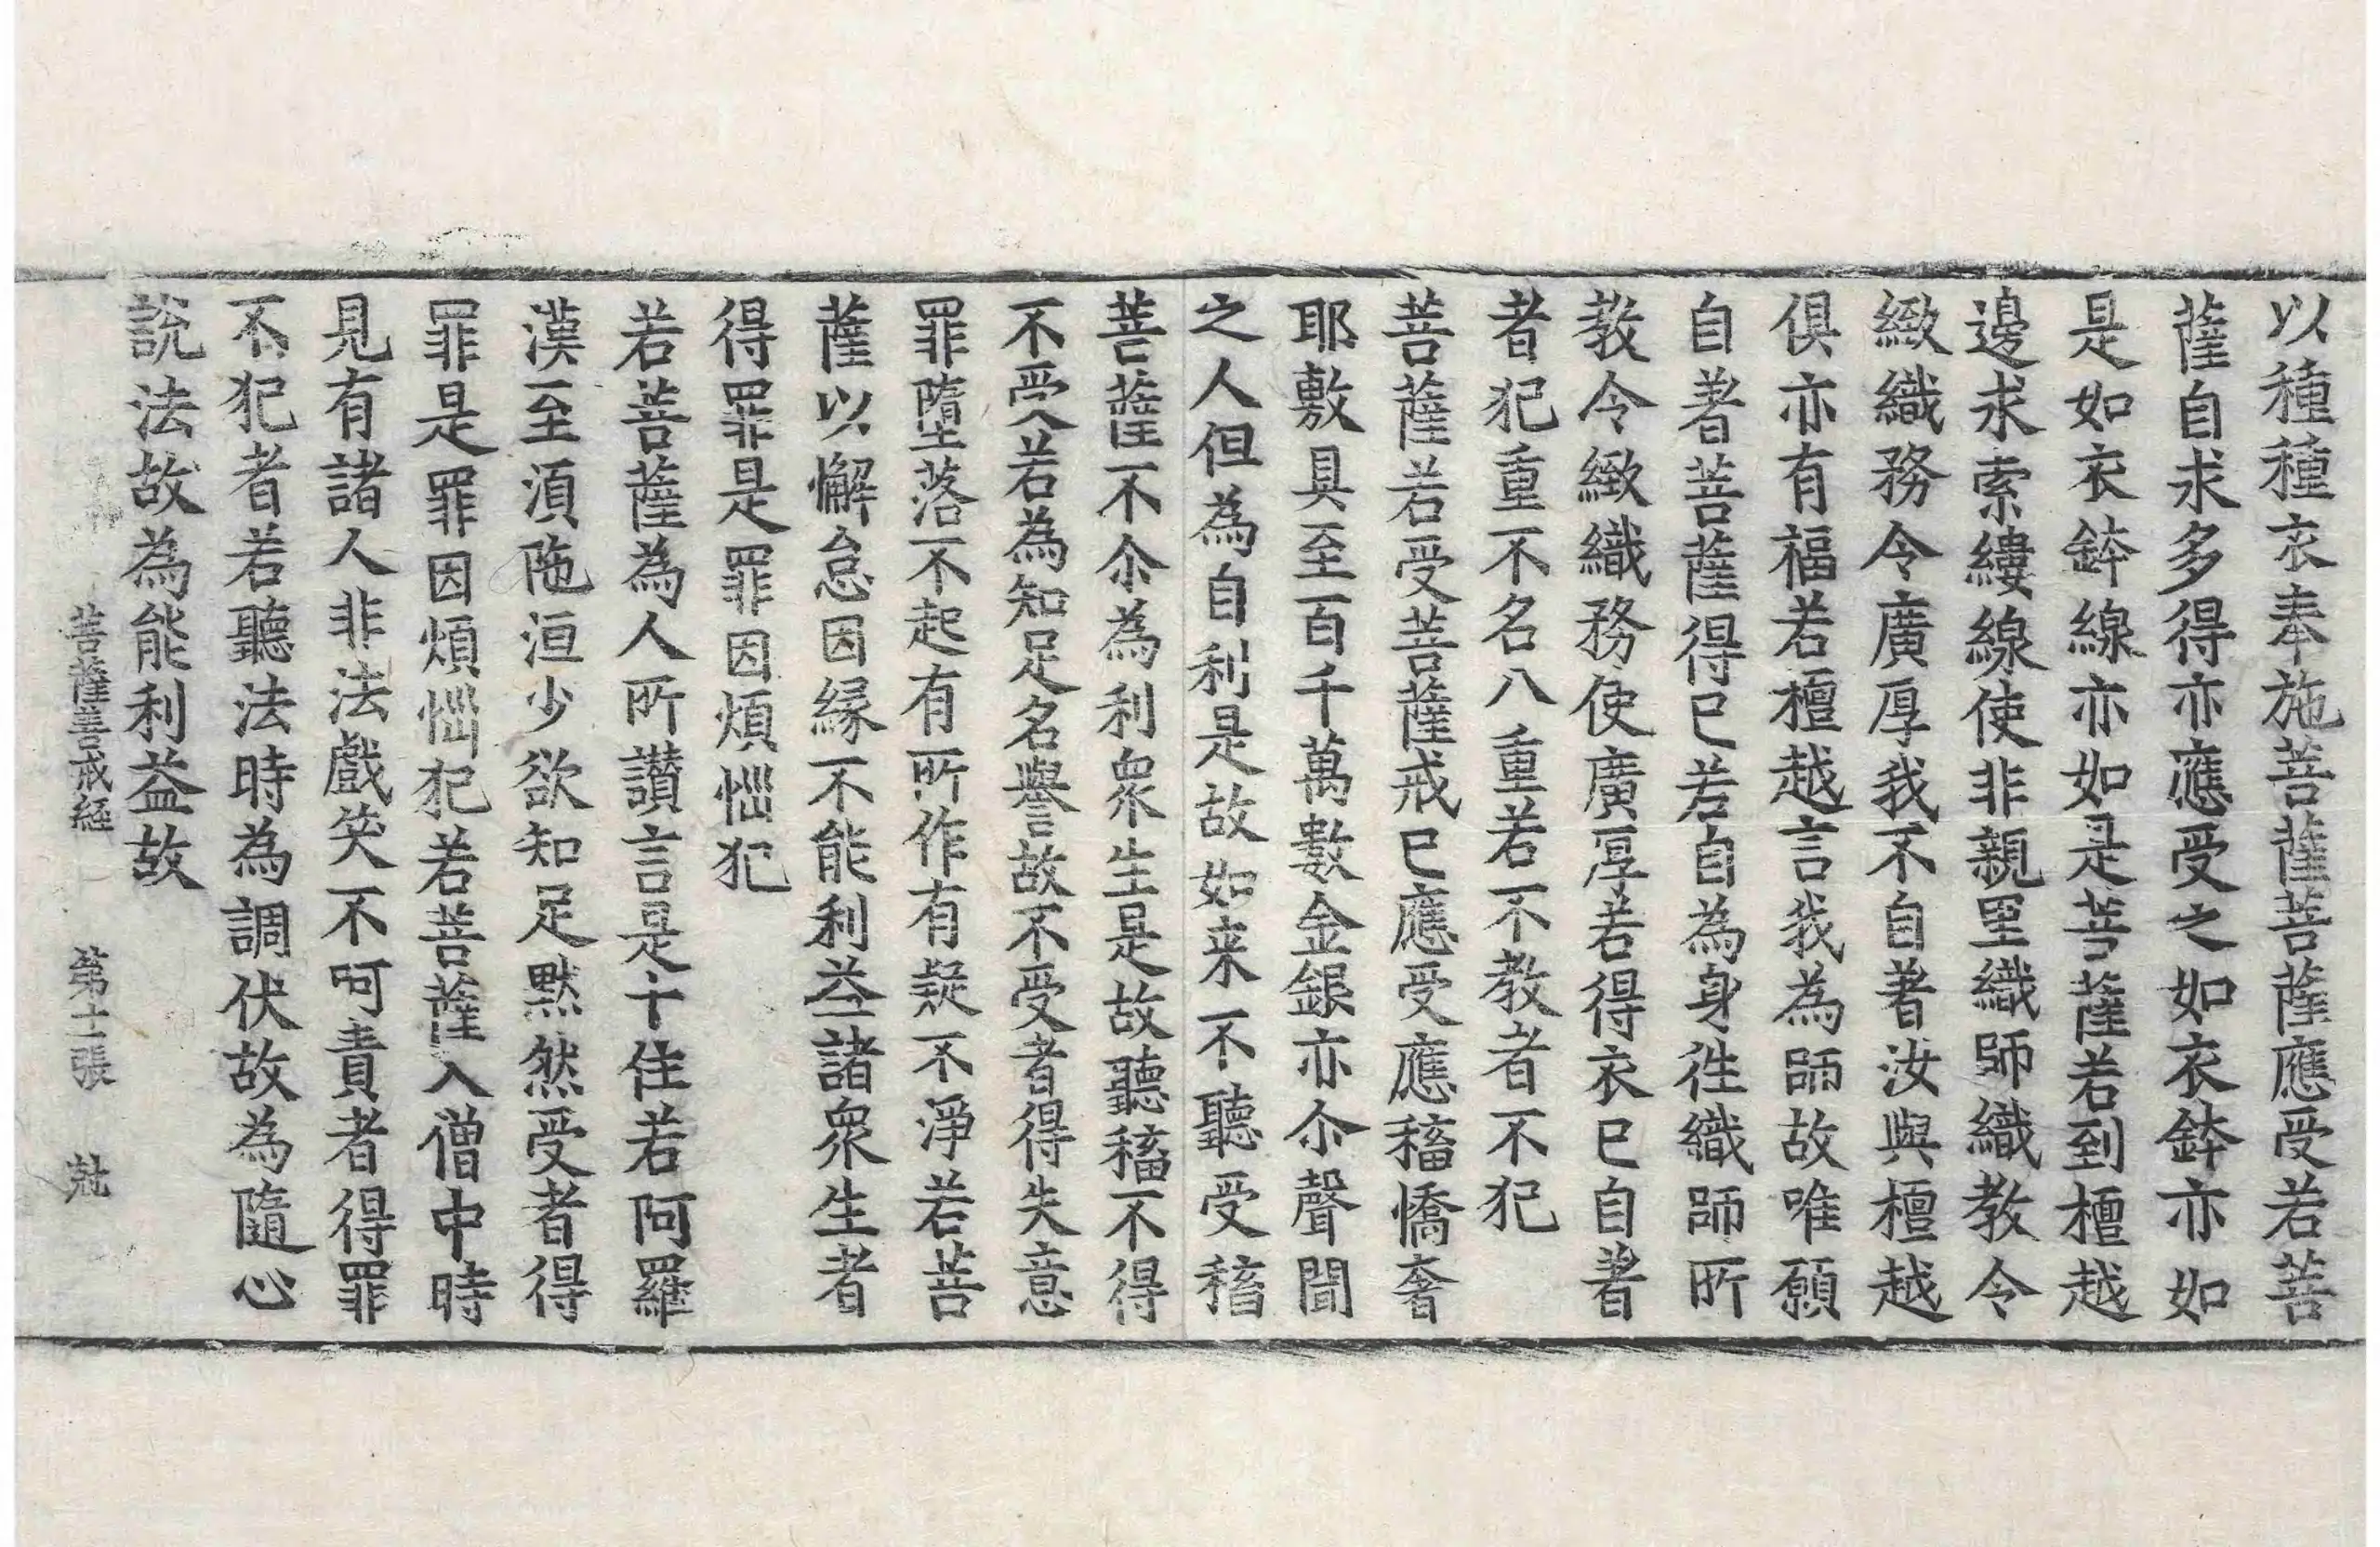 以種種衣奉施菩薩菩薩應受若菩
薩自求多得亦應受之如衣鉢亦如
是如衣鉢線亦如是菩薩若到檀越
邊求索縷線使非親里織師織教令
緻織務令廣厚我不自著汝與檀越
俱亦有福若檀越言我為師故唯願
自著菩薩得已若自為身徃織師所
教令緻織務使廣厚若得衣已自著
者犯重不名八重若不教者不犯
菩薩若受菩薩戒已應受應稸憍奢
耶敷具至百千萬數金銀亦尒聲聞
之人但為自利是故如来不聽受稸
菩薩不尒為利衆生是故聽稸不得
不受若為知足名譽故不受者得失意
罪墮落不起有所作有疑不淨若菩
薩以懈怠因縁不能利益諸衆生者
得罪是罪因煩惱犯
若菩薩為人所讃言是十住若阿羅
漢至湏陁洹少欲知足黙然受者得
罪是罪因煩惱犯若菩薩入僧中時
見有諸人非法戲笑不呵責者得罪
不犯者若聽法時為調伏故為隨心
說法故為能利益故
菩薩善戒経 第十二張